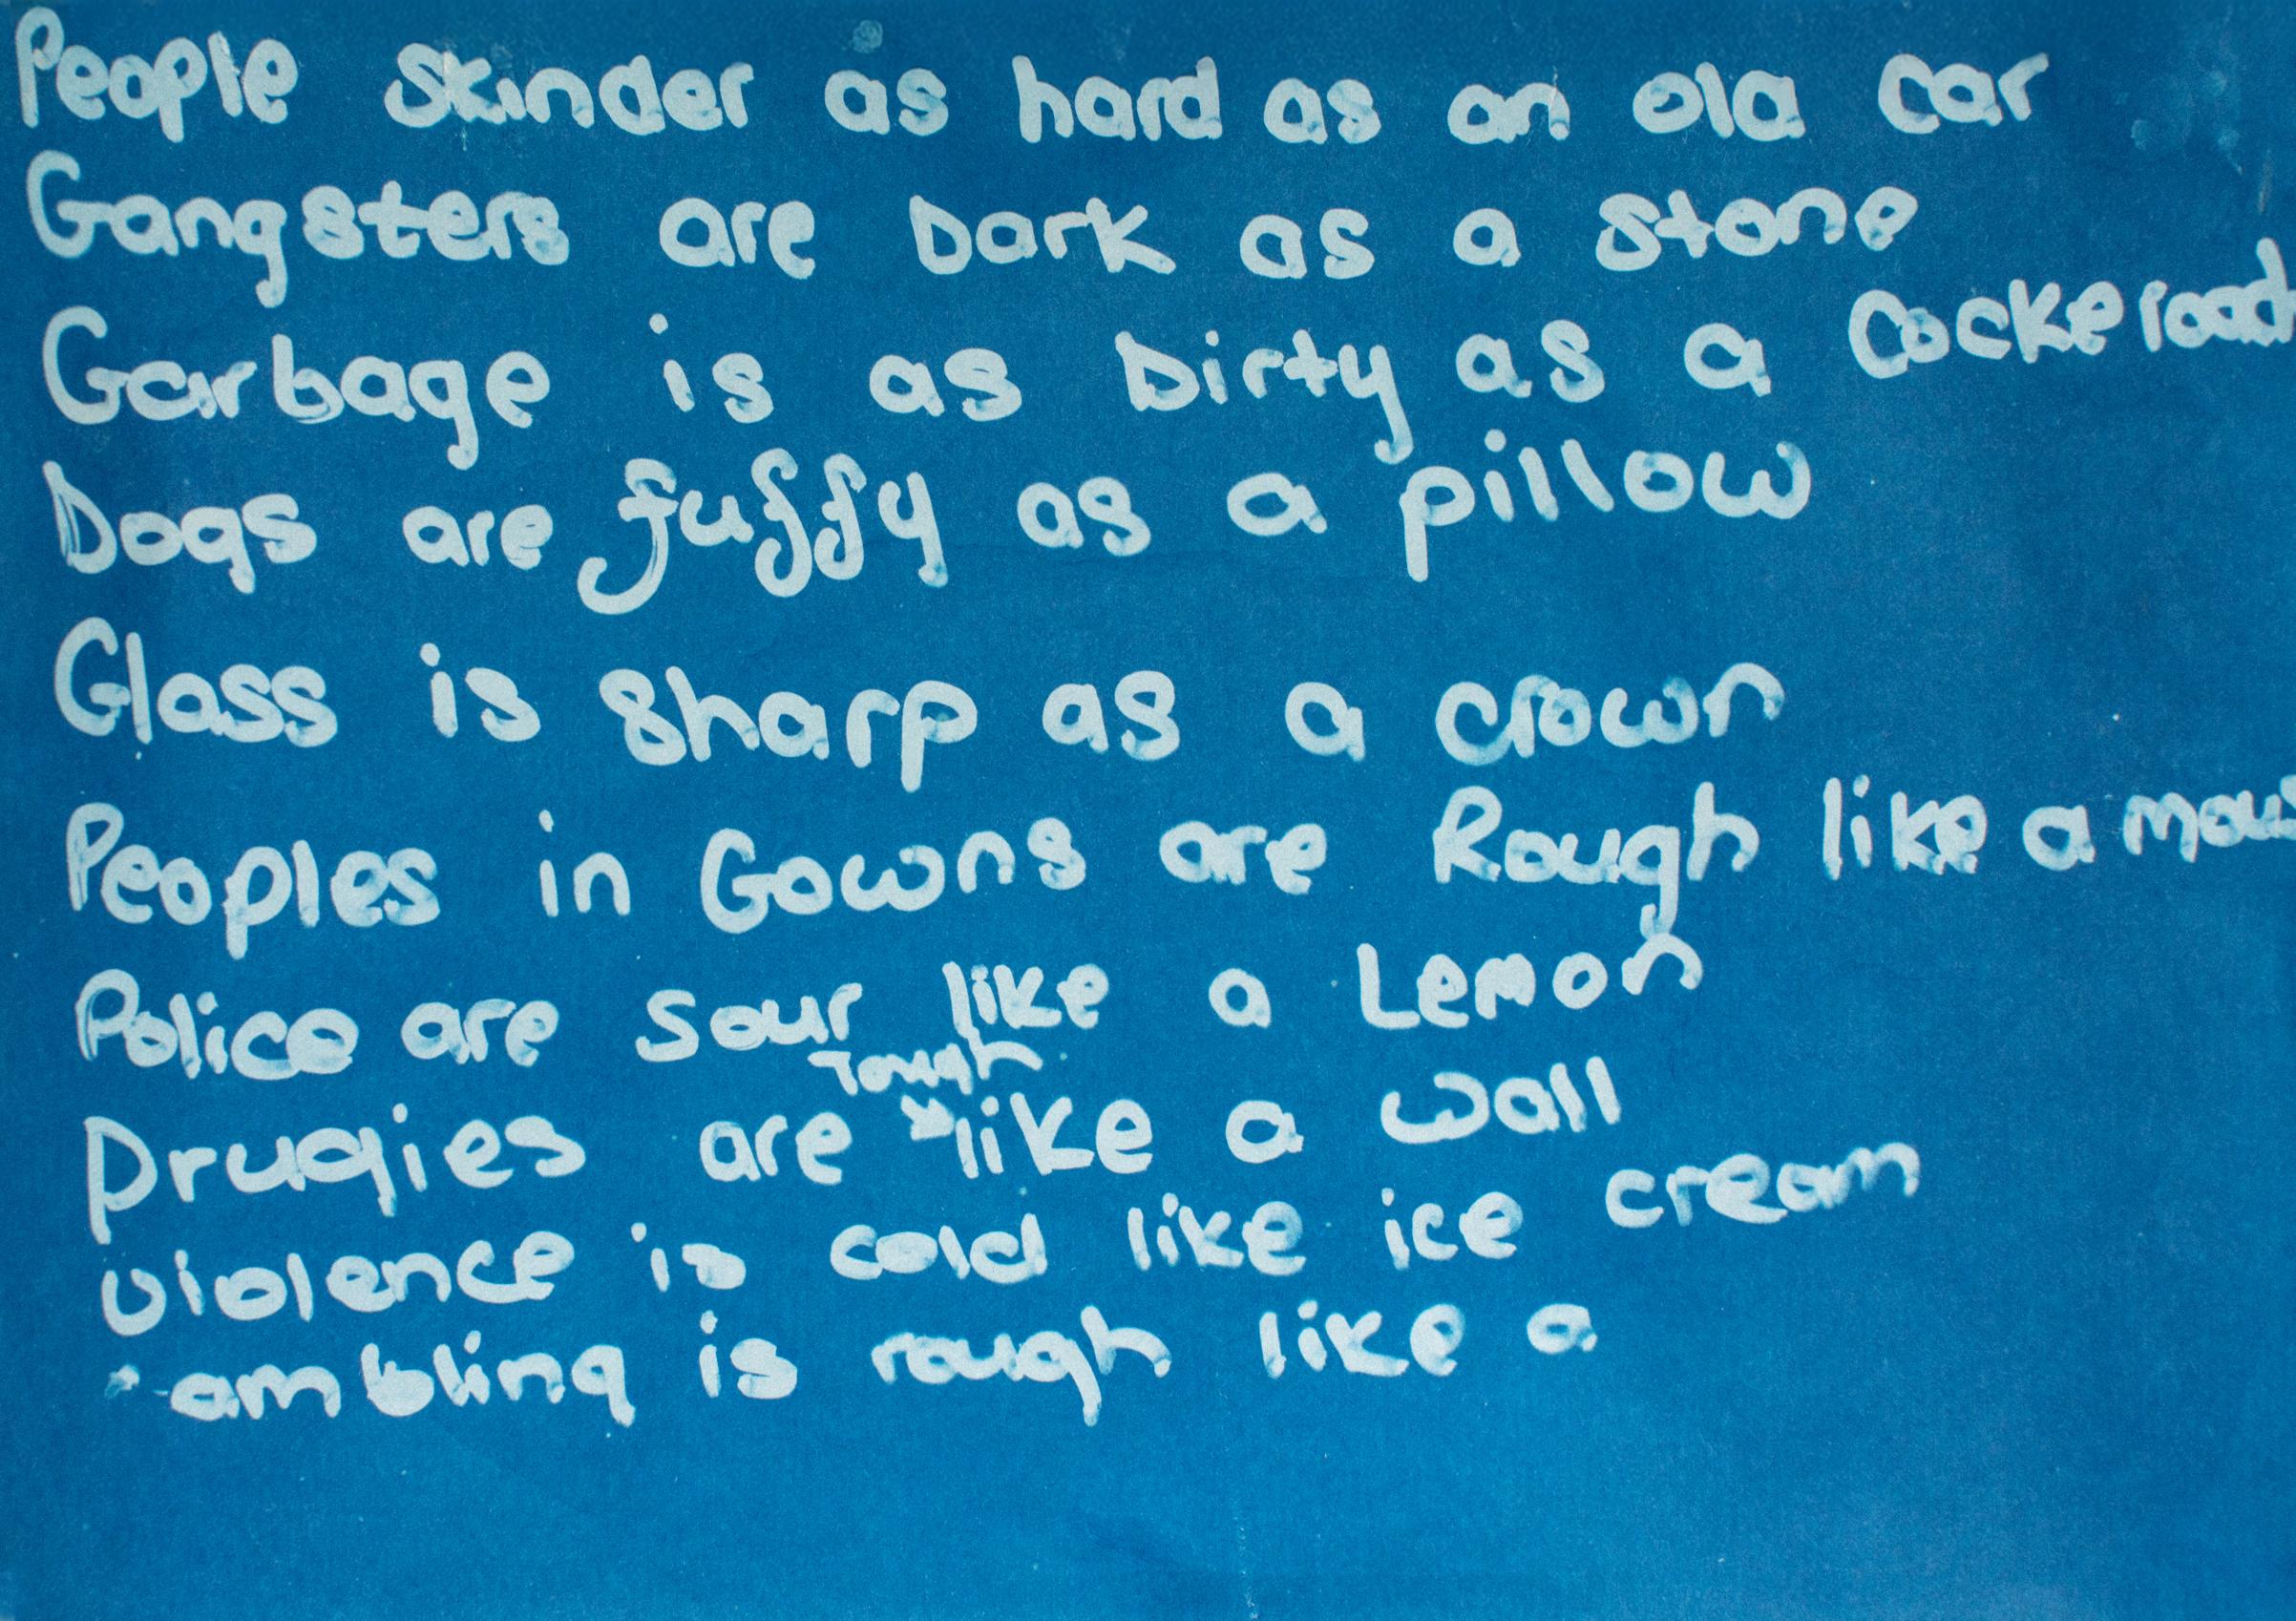 People skinder as hard as an old car
Gangsters are Dark as a stone
Garbage is as Dirty as a Cockeroach
Dogs are fuffy as a pillow
Glass is sharp as a crown
Peoples in Gowns are Rough like a
Police are sour like a Lemon
Tough
Drugies are like a wall
violence is cold like ice cream
ambling is rough like a